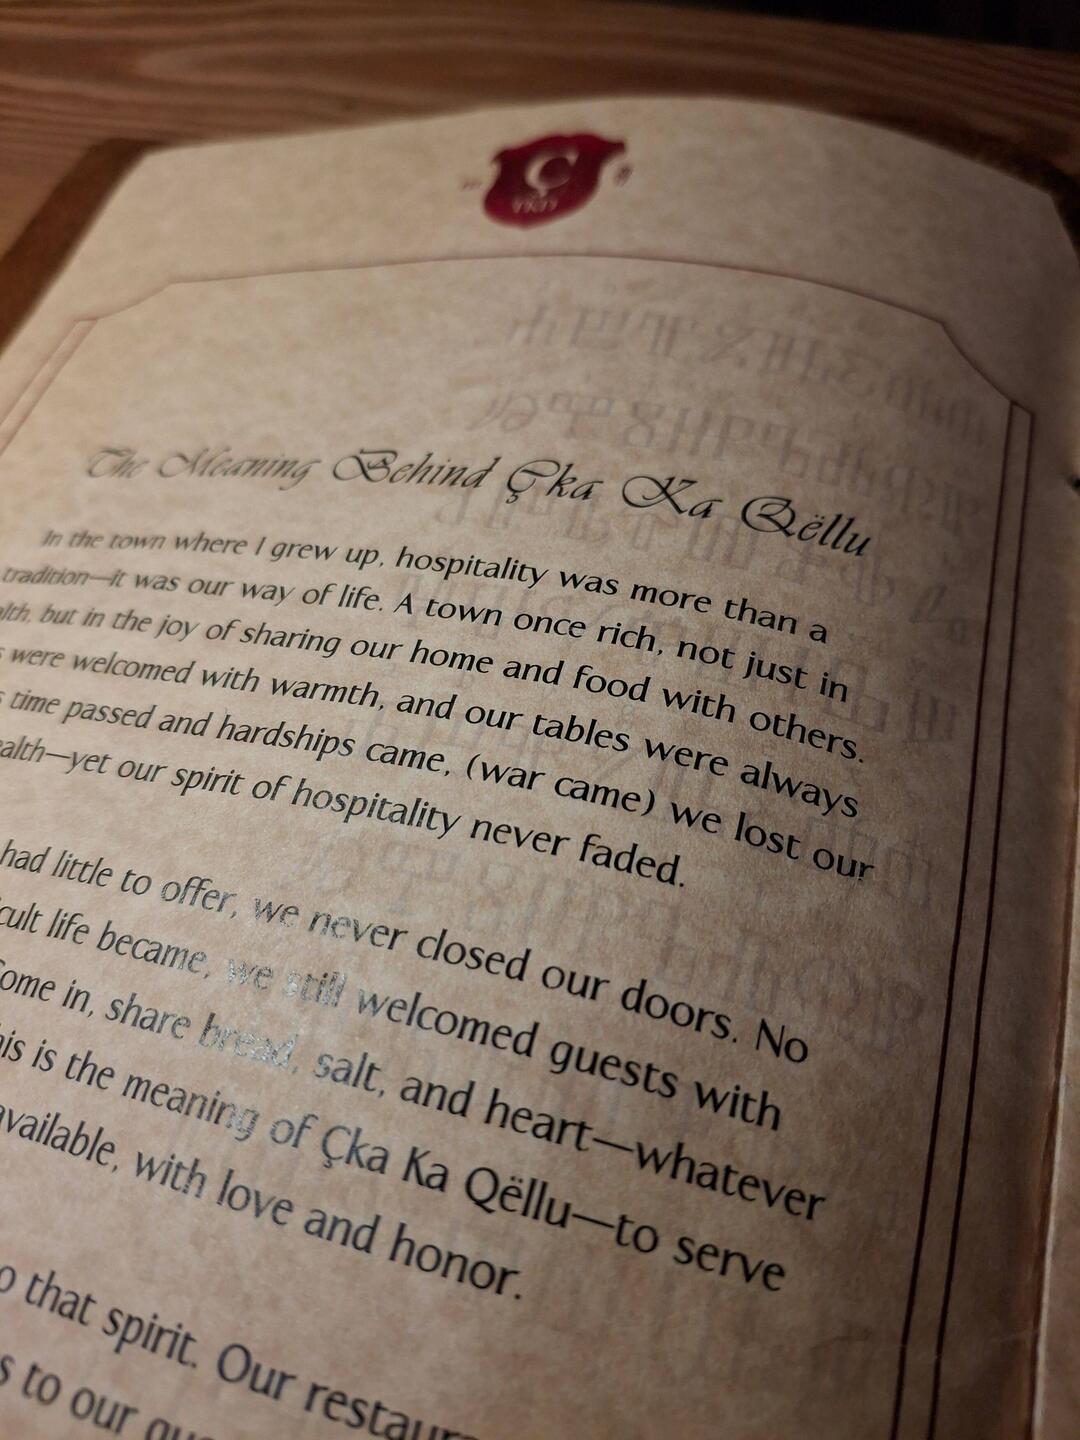 Ç
The Meaning Behind Çka Ka Qëllu
In the town where I grew up, hospitality was more than a
tradition—it was our way of life. A town once rich, not just in
but in the joy of sharing our home and food with others.
were welcomed with warmth, and our tables were always
time passed and hardships came, (war came) we lost our
—yet our spirit of hospitality never faded.
had little to offer, we never closed our doors. No
life became, we still welcomed guests with
in, share bread, salt, and heart—whatever
is the meaning of Çka Ka Qëllu—to serve
available, with love and honor.
that spirit. Our
to our